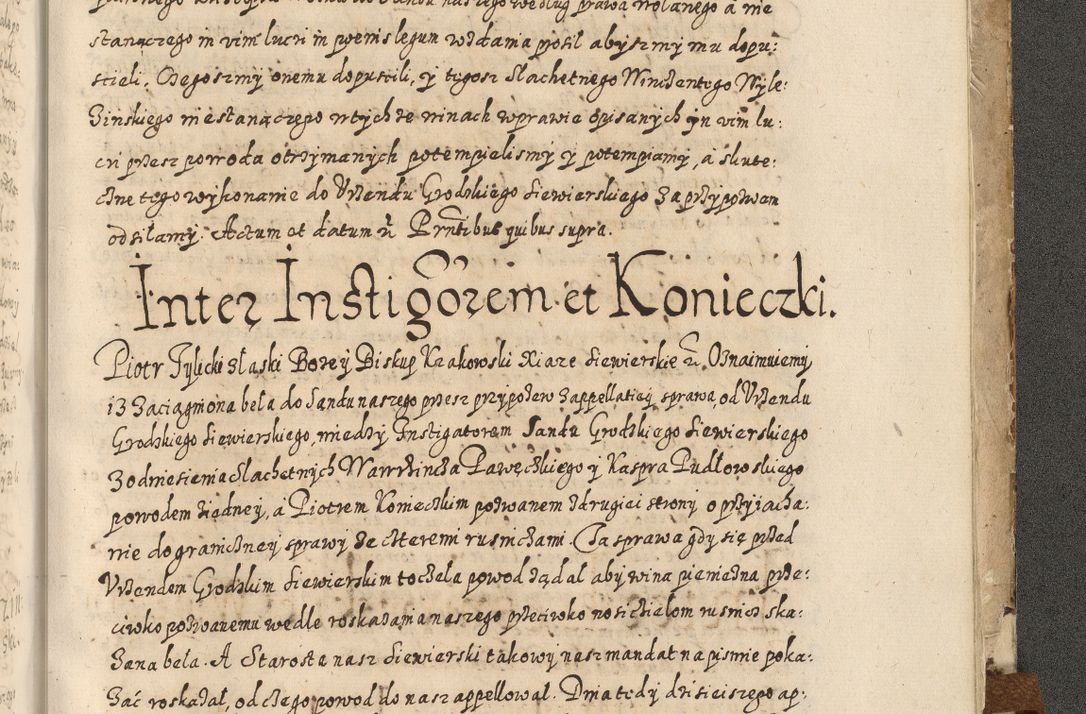 stanączego in vim lucri in pœnis legum wzdania prosił abyszmy mu dopu:
scieli. Czegoszmy onemu dopuscili, y tegosz Slachetnego Wincentego Wyle:
Zinskiego niestanączego w tych ze winach w prawie opisanych yn vim lu:
cri przesz powoda otrzymanych potempieliszmy y potempiamy, a skute:
czne tego wykonanie do Vrzendu Grodzkiego Siewierskiego za przypozwem
odsiłamy. Actum et datum ut Prntibus quibus supra.
Inter Instigorem et Konieczki.
Piotr Tylicki z łaski Bozey Biskup Krakowski Xiąze Siewierskie etc. Oznaimuiemy
iz zaciągniona beła do Sandu naszego przesz przypozew z appellatiey sprawa, od Vrzendu
Grodzkiego Siewierskiego, miedzy Instigatorem Sandu Grodzkiego Siewierskiego
z odniesienia Slachetnych Wawrzincza Pawęczkiego y Kaspra Pudłowskiego
powodem z iedney, a Piotrem Konieczkim pozwanem z drugiei strony o przyiacha:
nie do graniczney sprawy ze czteremi rusniczami. Ta sprawa gdy się przed
Vrzendem Grodzkim Siewierskim toczeła powod ządał aby wina pienięzna prze:
ciwko pozwanemu wedle roskazania naszego przeciwko nosicielom rusnicz ska:
zana beła. A Starosta nasz Siewierski takowy nasz mandat na pismie poka:
zać roskazał, od czego powod do nasz appellował. Dnia tedy dzisieiszego ap: